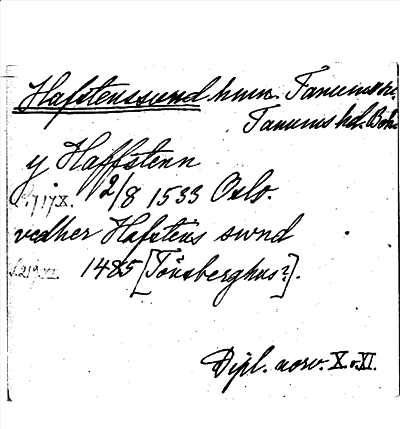 Hafstenssund hmn. Tanums sn.
Tanums hd. Boh.
y Haffstenn
s. 717 X. 2/8 1533 Oslo.
vedher Hafstens swnd
s. 219 XI. 1485 [Tönsberghus?].
Dipl. norv. X o. XI.